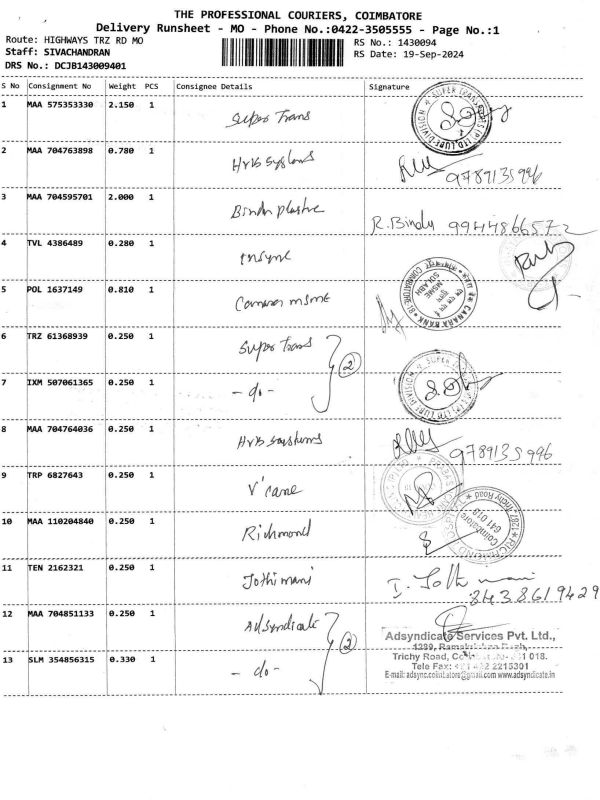 THE PROFESSIONAL COURIERS, COIMBATORE
Delivery Runsheet - MO - Phone No.:0422-3505555 - Page No.:1
Route: HIGHWAYS TRZ RD MO
RS No.: 1430094
Staff: SIVACHANDRAN
RS Date: 19-Sep-2024
DRS No.: DCJB143009401
S No Consignment No Weight PCS Consignee Details Signature
1 MAA 575353330 2.150 1 Super Trans
2 MAA 704763898 0.780 1 HVB Systems
9789135996
3 MAA 704595701 2.000 1 Bindu R. Bindu 9944866572
4 TVL 4386489 0.280 1 Insync
5 POL 1637149 0.810 1 msme
CANARA BANK
MSME
SULABH
6 TRZ 61368939 0.250 1 Super Trans
2
7 IXM 507061365 0.250 1 - do -
8 MAA 704764036 0.250 1 HVB Systems
9789135996
9 TRP 6827643 0.250 1 V'cane
10 MAA 110204840 0.250 1 Richmond
Coimbatore
641 018
11 TEN 2162321 0.250 1 Jothimani
8438619429
12 MAA 704851133 0.250 1 Adsyndicate
2
Adsyndicate Services Pvt. Ltd.,
13 SLM 354856315 0.330 1 - do -
Trichy Road, 018.
Tele Fax: 2215301
www.adsyndicate.in